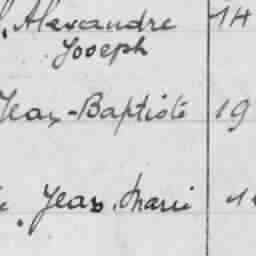 Alexandre 14
Joseph
Jean-Baptiste 19
Jean Marie